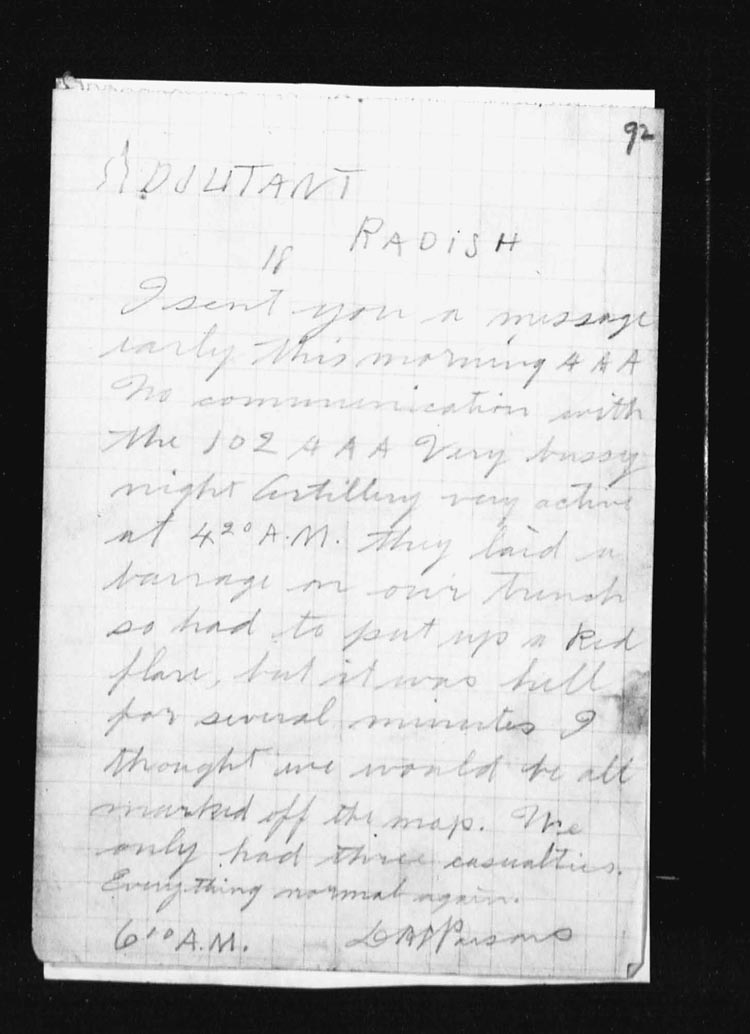 92
ADJUTANT
RADISH
18
I sent you a message
early this morning AAA
No communication with
the 102 AAA Very bussy
night Artillery very active
at 4²⁰ A.M. they laid a
barrage on our trench
so had to put up a Red
flare, but it was hell
for several minutes I
thought we would be all
marked off the map. We
only had three casualties.
Everything normal again.
6¹⁰ A.M. Parsons